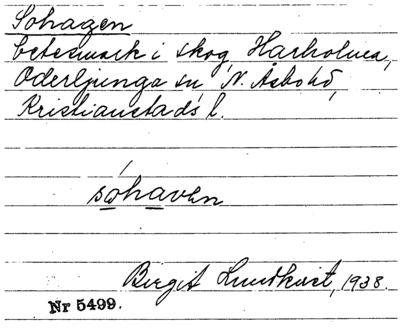 Sohagen
betesmark i skog, Harholma,
Oderljunga sn, N. Åsbo hd,
Kristianstads l.
sohaven
Birgit Lundkvist, 1938.
Nr 5499.